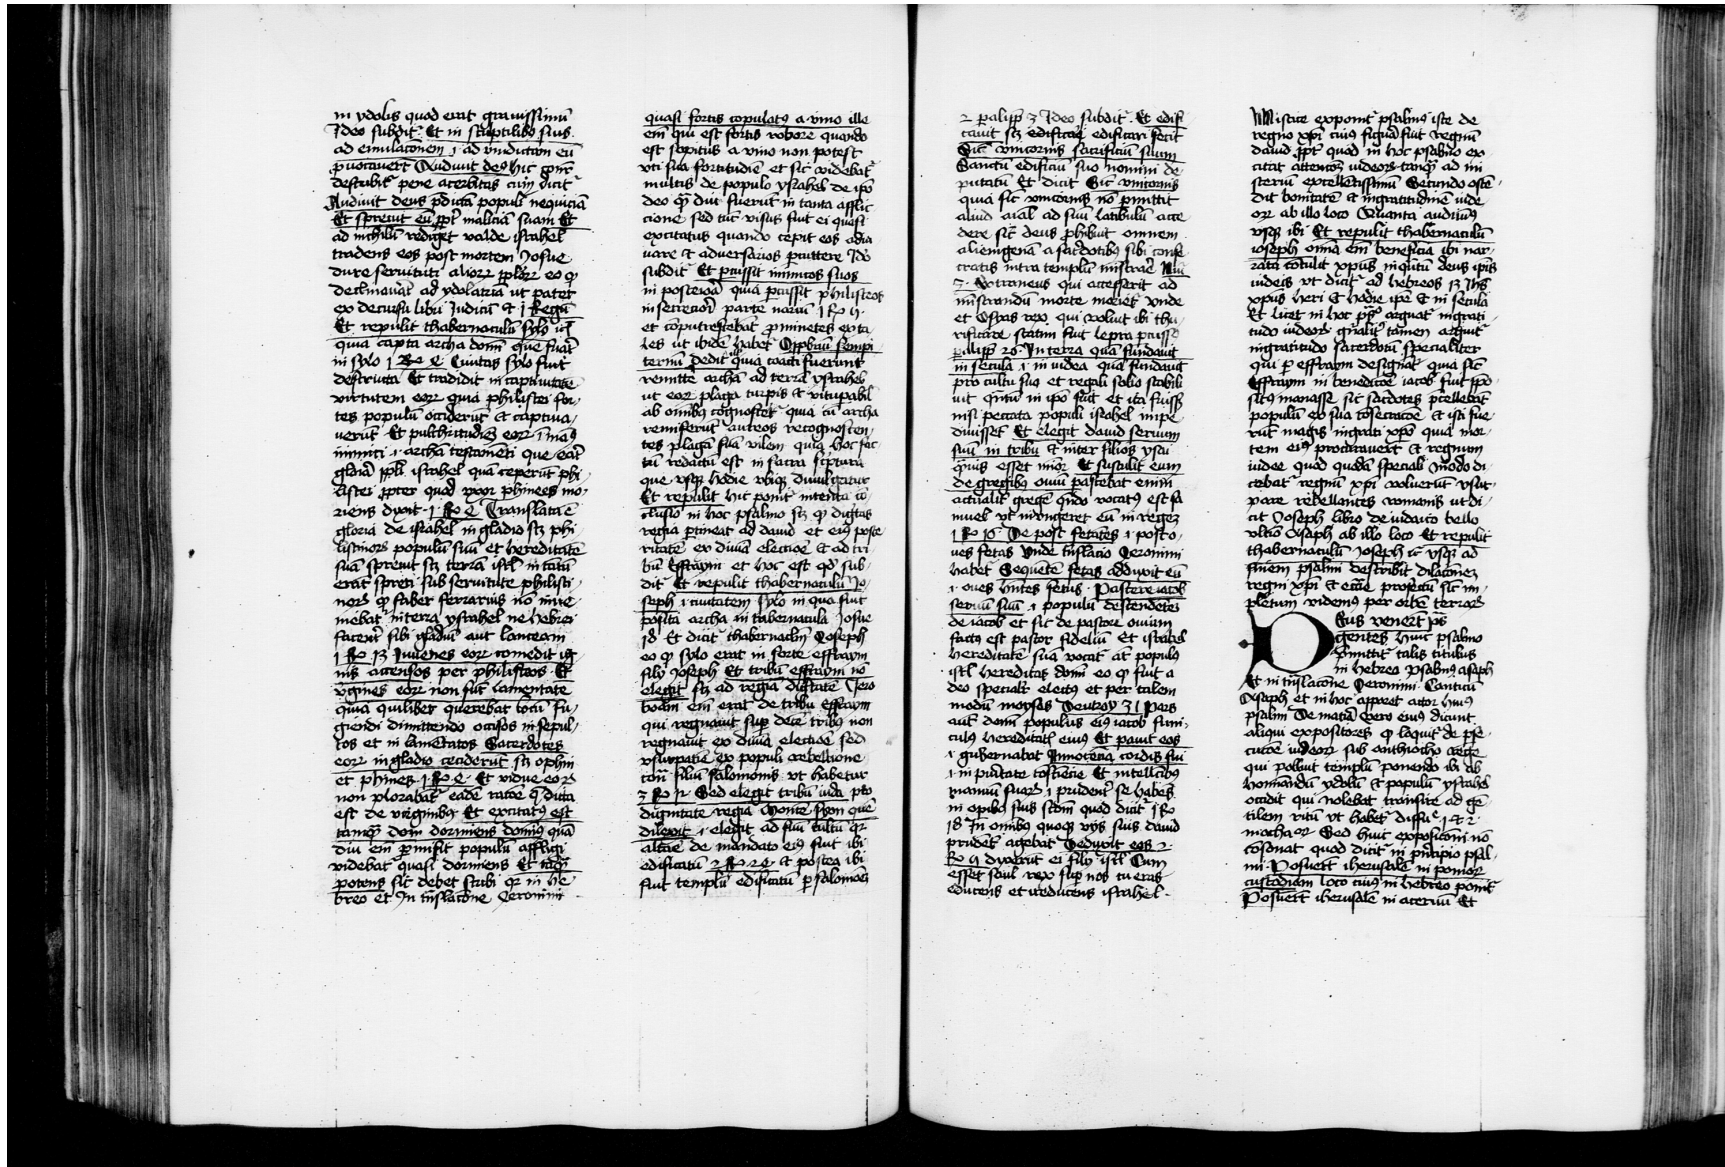 in ydolis quod erat gravissimū
Ideo subdit Et in sculptilibꝫ suis
ad emulacōnem ı ad vindictam eū
ꝓvocavert Audivit deꝰ hic
describit pene acerbitas cum dicit
Audivit deus pdicta populi nequiciā
Et sprevit eū ppt maliciā suam Et
ad nichilū redeget valde israhel
tradens eos post mortem Iosue
dure servituti
declinavāt ad ydolatriā ut patet
ex decursu libri Iudicū et 1 Regū
Et repulit thabernaculū sylo
quia capta archa domī que fuāt
in sylo Civitas sylo fuit
destructa Et tradidit in captivitatē
virtutem eorꝝ quia philistei for
tes populū occiderūt et captiva
verūt Et pulchritudinē eorꝝ ı manꝰ
inimici ı archā testamēti que erāt
gloria ppli israhel quā ceperūt phi
listei ppter quod uxor phinees mo
riens dixit Translata ē
gloria de israhel in gladio sꝫ phi
listinorꝝ populū suū et hereditatē
suā sprevit sꝫ terrā isrl in tātū
erat spreti sub servitute philisti
norꝝ ꝙ faber ferrarius nō inve
niebat in terra ysrahel ne hebrei
facerēt sibi gladiū aut lanceam
1 Re 13 Iuvenes eorꝝ comedit ig
nis accensos per philisteos Et
virgines eorꝝ non sūt lamentate
quia quilibet querebat locū fu
giendi dimittendo occisos in sepul
tos et in lamētatos Sacerdotes
eorꝝ in gladio ceciderūt sꝫ ophni
et phinees Et vidue eorꝝ
non plorabāt eadē racōe ꝗ dicta
est de virginibꝰ Et excitatꝰ est
tamꝗ dom dormiens domiꝰ quia
diu em pmisit populū affligi
videbat quasi dormiens Et
potens sic debet scribi qꝛ in he
breo et In trāslacōne Ieronimi
quasi fortis copulatꝰ a vino ille
em qui est fortis robore quando
est sopitus a vino non potest
uti sua fortitudīe et sic videbat
multis de populo ysrahel de ipo
deo ꝙ diu fuerūt in tanta afflic
cione sed tūc visus fuit ei quasi
excitatus quando cepit eos adiu
vare et adversarios pcutere Ido
subdit Et pcussit inimicos suos
in posteriora quia pcussit philisteos
in secreciori parte
et coputrescebāt pminētes exta
les ut ibidē habet Opprobriū sempi
ternū dedit quia coacti fuerunt
remitte archā ad terrā ysrahel
ut eorꝝ plaga turpis et vitupabil
ab omibꝰ cognoscet quia cū archa
remiserūt aureos recognoscen
tes plagā suā vilem quia hoc fac
tū redactū est in sacra scriptura
que usꝗ hodie ubiꝗ divulgatur
Et repulit hic ponit intenta cō
clusio in hoc psalmo sꝫ ꝙ dignitas
regia ptineat ad david et eiꝰ poste
ritatē ex divina electiōe et ad tri
bū Effraym et hoc est qd sub
dit Et repulit thabernaculū Io
seph ı civitatem sylo in qua fuit
posita archa in tabernacula Iosue
18 Et dicit thabernaclm Ioseph
eo ꝙ sylo erat in sorte effraym
filij Ioseph Et tribū effraym nō
elegit sꝫ ad regiā dignitatē Iero
boam em erat de tribu effraym
qui regnavit sup decē tribus non
regnavit ex divina electiōe sed
usurpatiē ex populi rebellione
cont filiū salomonis ut habetur
Sed elegit tribū iuda pro
dignitate regia Montē syon quē
dilexit ı elegit ad suū cultū qꝛ
altare de mandato eiꝰ fuit ibi
edificatū et postea ibi
fuit templū edificatū p salomōe
2 paliꝑ 3 Ideo subdit Et edifi
cavit sꝫ edificari fecit
Sic unicornis sacrificiū suum
Sanctū edificiū suo nomini de
putatū Et dicit Sic unicornis
quia sic unicornis nō pmittit
aliud aial ad suū latibulū acce
dere sic deus phibuit omnem
alienigenā a sacerdotibꝰ sibi conse
cratis intra templū mistrare
3 Extraneus qui accesserit ad
mīstrandū morte moriet Unde
et Ozias rex qui voluit ibi thu
rificare statim fuit lepra pcussꝰ
paliꝑ 26 In terra quā fundavit
in secula ı in iudea quā fundavit
pro cultu suo et regali solio stabili
vit in ipo fuit et ita fuiss
nisi peccata populi israhel impe
divisset Et elegit david servum
suū in tribu et inter filios ysai
ꝗvis esset minor Et sustulit eum
de gregibꝰ oviū pascebat enim
actualit gregē qn vocatꝰ est sa
muel ut iniungeret eū in regē
De post fetātes ı posto
ves fetas Unde trāslacio Ieronimi
habet Sequētē fetas adduxit eū
ı oves hñtes fetus Pascere iacob
servū suū ı populū descendētē
de iacob et sic de pastore ovium
factꝰ est pastor fidelium Et israhel
hereditatē suā vocat at populꝰ
isrl hereditas domī eo ꝙ fuit a
deo specialit electꝰ et per talem
modū moyses Deutroꝝ 32 Pars
aut domī populus eiꝰ iacob funi
culꝰ hereditatꝭ eius Et pavit eos
ı gubernabat Innocēcia cordis sui
ı in puritate cōsciēcie Et intellcibꝰ
manuū suarꝝ ı prudēter se habēs
in opibꝰ suis scdm quod dicit
18 In omibꝰ quoꝗ viis suis david
prudēt agebat Deduxit eos 2
dixerūt ei filij isrl Cum
esset saul rex sup nos tu eras
educens et reducens israhel
Mistice exponit psalmꝰ iste de
regno xpi cuiꝰ figura fuit regnū
david ppt quod in hoc psalmo ex
citat attentos iudeos tanꝗ ad mi
steriū excellētissimū Secundo osten
dit bonitatē et ingratitudinē iude
orꝝ ab illo loco Quanta audivimꝰ
usꝗ ibi Et repulit thabernaculū
ioseph omia em beneficia ibi nar
rata cōtulit xpūs inquātū deus ipis
iudeis ut dicit ad hebreos 13 Ihs
xpūs heri et hodie ipe et in secula
Et licet in hoc arguat ingrati
tudo iudeorꝝ generalit tamen arguit
ingratitudo sacerdotū specialiter
qui p effraym designat quia sic
Effraym in benedictōe iacob fuit ppo
situs manasse sic sacdotes pcellebāt
populū ex sua cōsecracōe et isti fue
rūt magis ingrati xpo quia mor
tem eiꝰ procuravert et regnum
iudee quod quodā speciali modo di
cebat regnū xpi voluerūt usur
pare rebellantes romanis ut di
cit Ioseph libro de iudaico bello
ultio Asaph ab illo loco Et repulit
thabernaculū Ioseph ic usꝗ ad
finem psalmi describit dilacōnē
regni xpi et ecclie profectū sic im
pletum videmꝰ per orbē terrarꝝ
Deus venert
gentes huic psalmo
pmittit talis titulus
in hebreo psalmus asaph
Et in trāslacōne Ieronimi Canticū
Asaph et in hoc apparet actor huiꝰ
psalmi De materia vero eius dicunt
aliqui expositores ꝙ loquit de pse
cucōe iudeorꝝ sub anthiocho rege
qui polluit templū ponendo ibi ab
hominandū ydolū et populū ysrahel
occidit qui nolebat transire ad gē
tilem ritū ut habet diffuse 1 et 2
machaorꝝ Sed huic exposicōni nō
cōsonat quod dicit in principio psal
mi Posuert iherusalē in pomorꝝ
custodiam loco cuiꝰ in hebreo ponit
Posuert iherusalē in acervū Et